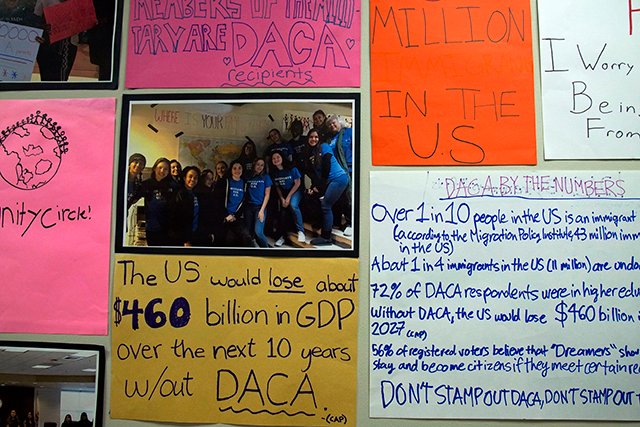 MEMBERS OF THE MILI
TARY ARE DACA
recipients
MILLION
IN THE
U.S
I Worry
Be in
From
nityCircle!
WHERE IS YOUR
DACA BY THE NUMBERS
Over 1 in 10 people in the US is an immigrant
(according to the Migration Policy Institute, 43 million imm
in the US)
About 1 in 4 immigrants in the US (11 million) are und
72% of DACA respondents were in higher edu
Without DACA, the US would lose $460 billion i
2027 (CAP)
56% of registered voters believe that "Dreamers" shou
stay and become citizens if they meet certain re
DON'T STAMP OUT DACA, DON'T STAMP OUT
The US would lose about
$460 billion in GDP
over the next 10 years
w/out DACA
-(CAP)